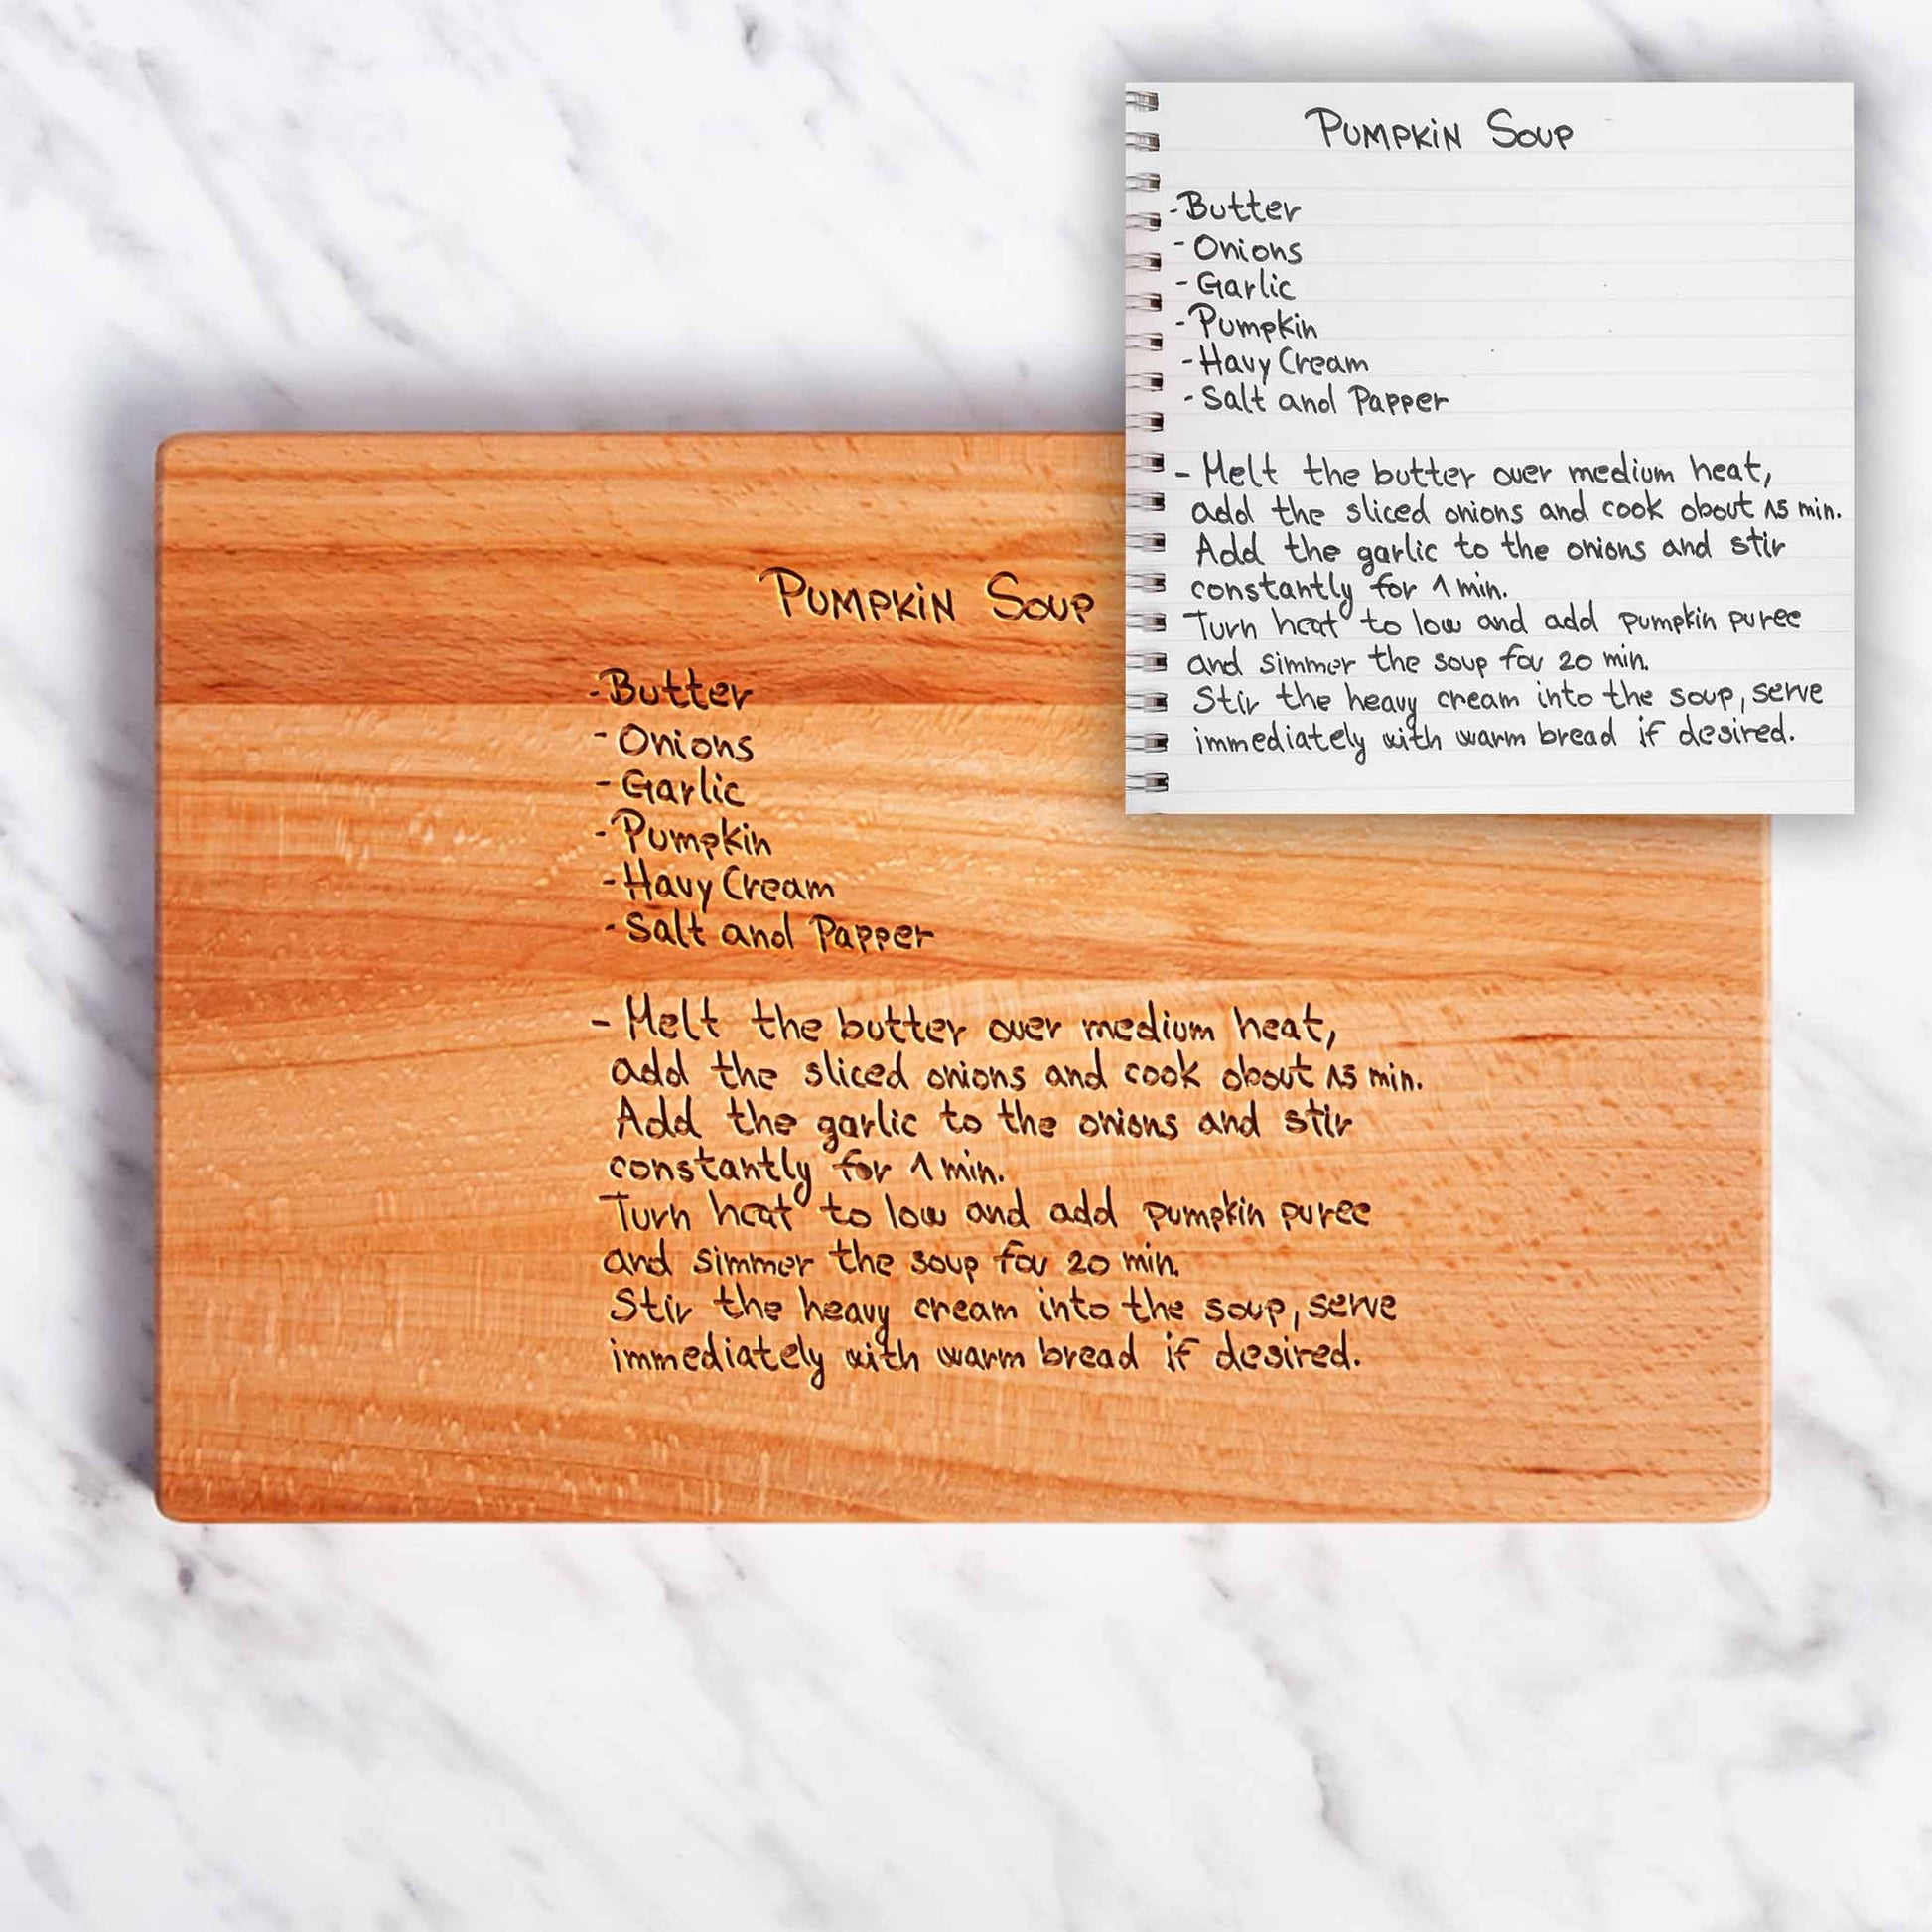 Pumpkin Soup
-Butter
-Onions
-Garlic
-Pumpkin
-Havy Cream
-Salt and Papper
- Melt the butter over medium heat,
add the sliced onions and cook obout 15 min.
Add the garlic to the onions and stir
constantly for 1 min.
Turn heat to low and add pumpkin puree
and simmer the soup for 20 min.
Stir the heavy cream into the soup, serve
immediately with warm bread if desired.
Pumpkin Soup
-Butter
-Onions
-Garlic
-Pumpkin
-Havy Cream
-Salt and Papper
- Melt the butter over medium heat,
add the sliced onions and cook obout 15 min.
Add the garlic to the onions and stir
constantly for 1 min.
Turn heat to low and add pumpkin puree
and simmer the soup for 20 min.
Stir the heavy cream into the soup, serve
immediately with warm bread if desired.